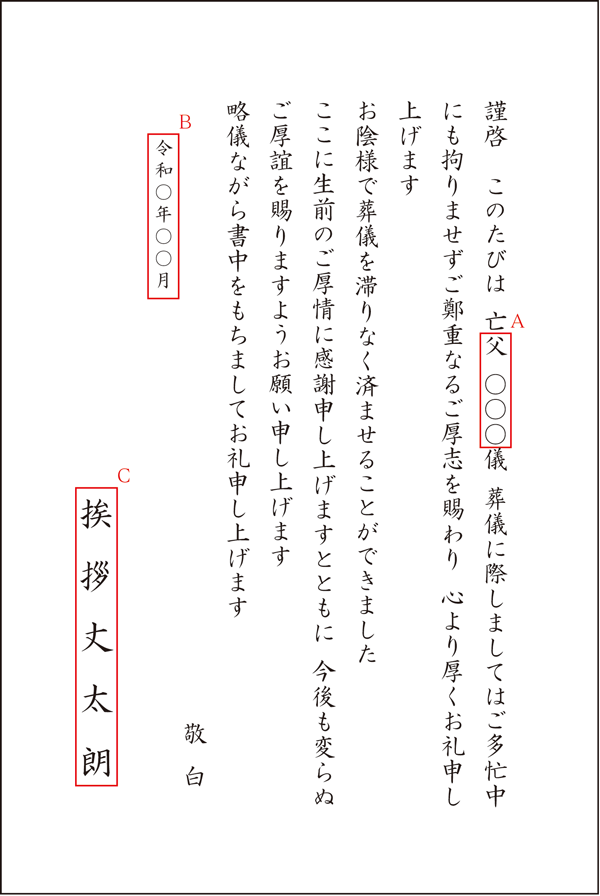 謹啓　このたびは　亡父　〇〇〇儀　葬儀に際しましてはご多忙中
にも拘りませずご鄭重なるご厚志を賜わり　心より厚くお礼申し
上げます
お陰様で葬儀を滞りなく済ませることができました
ここに生前のご厚情に感謝申し上げますとともに　今後も変らぬ
ご厚誼を賜りますようお願い申し上げます
略儀ながら書中をもちましてお礼申し上げます
敬白
令和〇年〇〇月
挨拶丈太朗
A
B
C